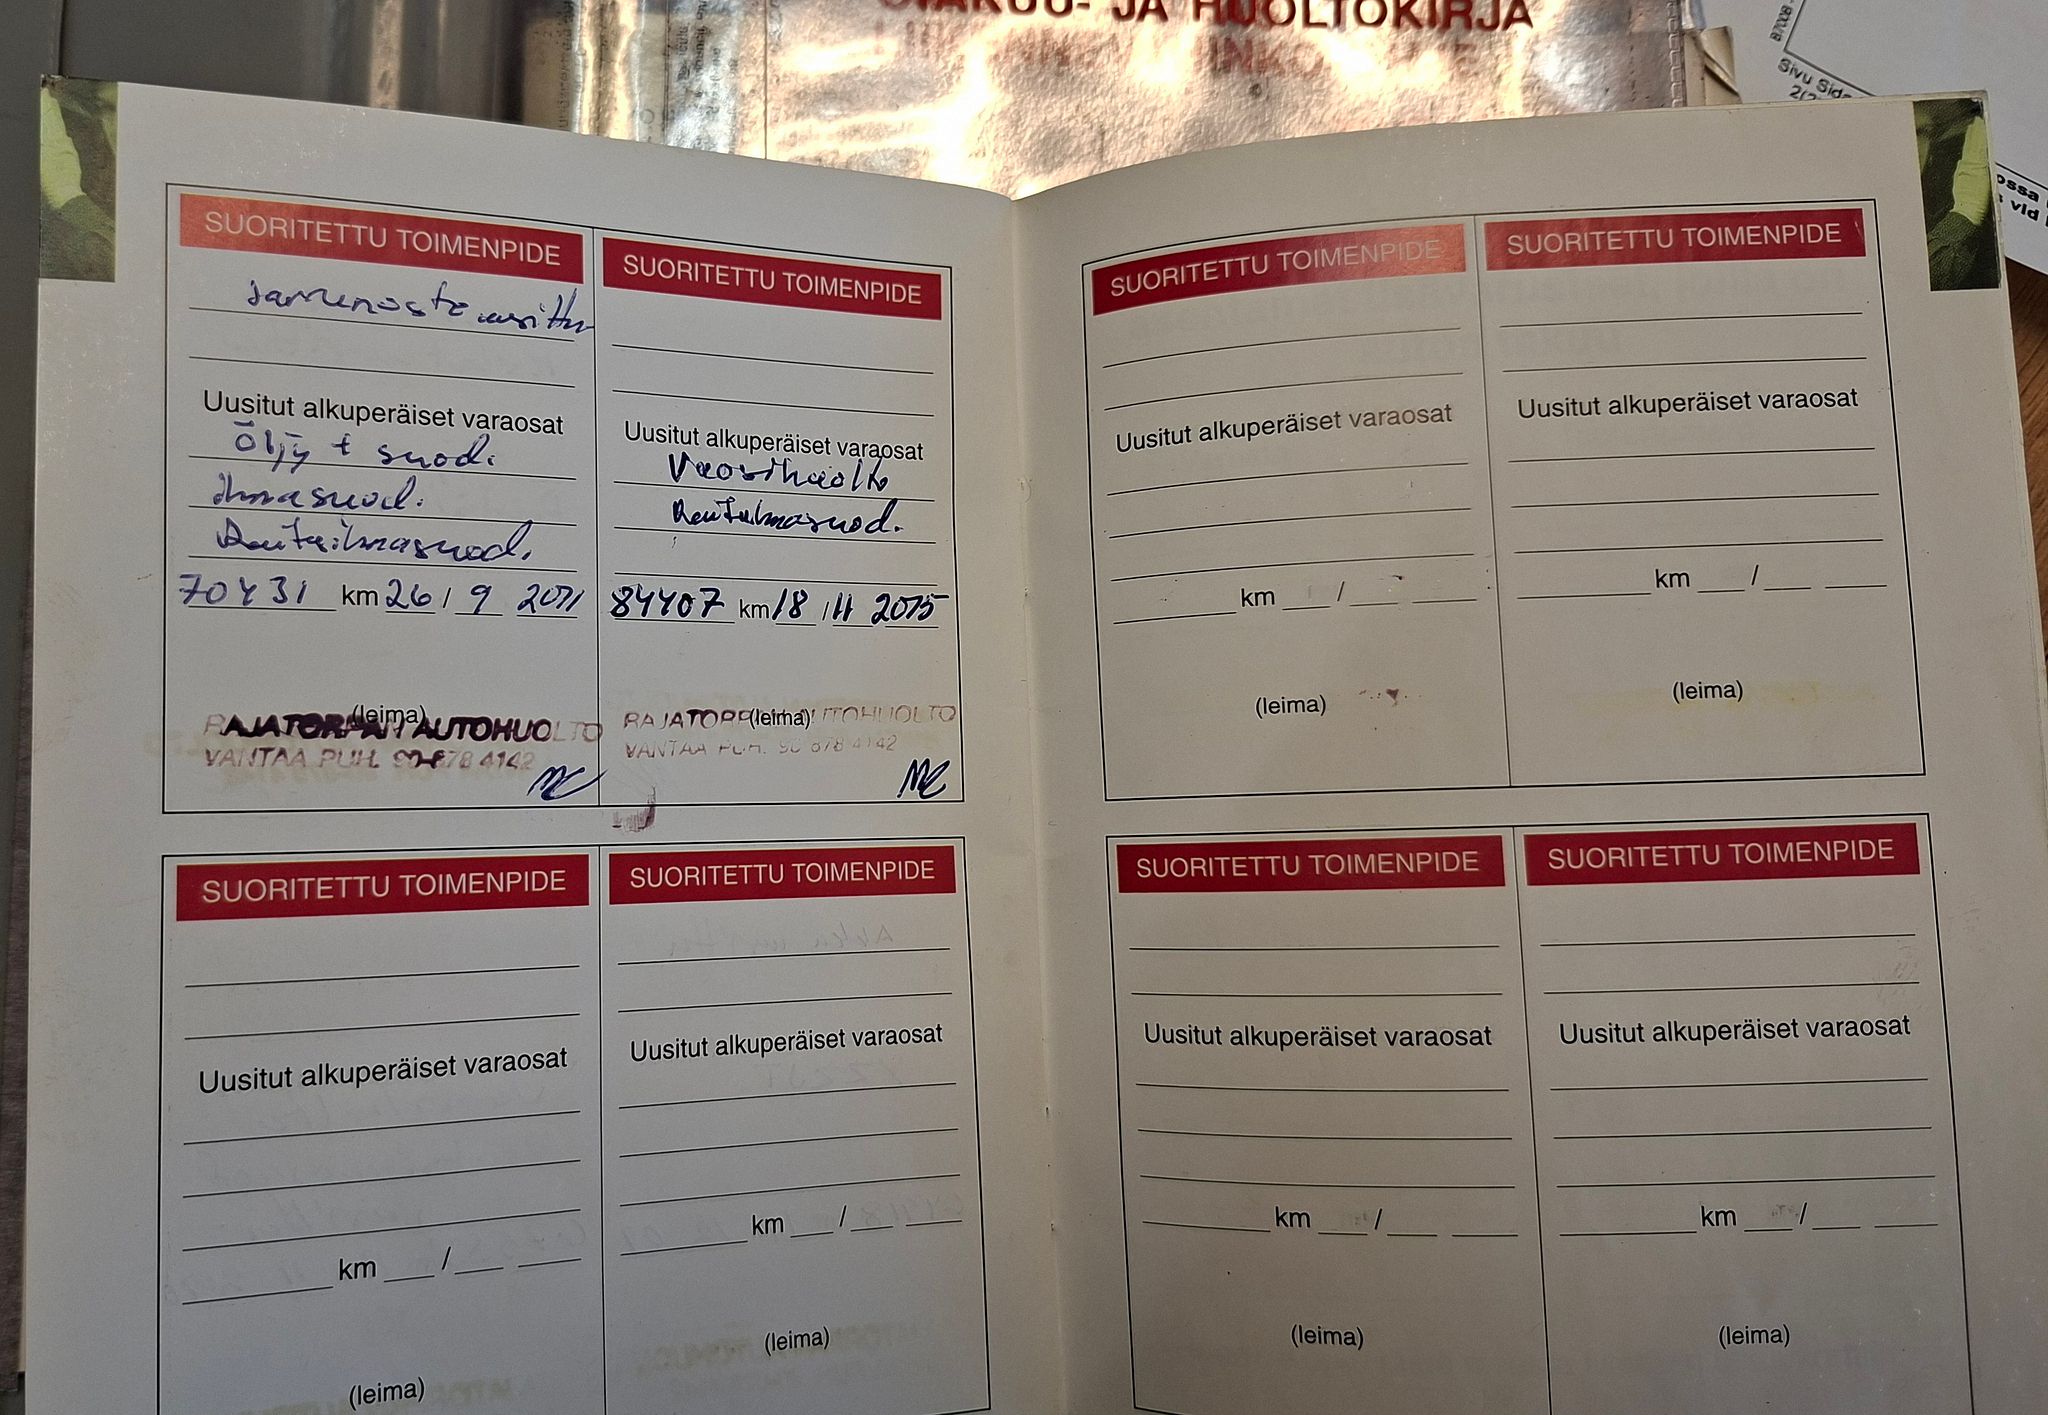 JA HUOLTOKIRJA
Sivu
SUORITETTU TOIMENPIDE
Uusitut alkuperäiset varaosat
öljy + suod.
ilmasuod.
Raitisilmasuod.
70431 km 26 / 9 2011
(leima)
RAJATORPAN AUTOHUOLTO
VANTAA PUH. 90-878 4142
SUORITETTU TOIMENPIDE
Uusitut alkuperäiset varaosat
Vuosihuolto
Raitisilmasuod.
84407 km 18 / 11 2015
(leima)
RAJATORPAN AUTOHUOLTO
VANTAA PUH. 90 878 4142
SUORITETTU TOIMENPIDE
Uusitut alkuperäiset varaosat
km /
(leima)
SUORITETTU TOIMENPIDE
Uusitut alkuperäiset varaosat
km /
(leima)
SUORITETTU TOIMENPIDE
Uusitut alkuperäiset varaosat
km /
(leima)
SUORITETTU TOIMENPIDE
Uusitut alkuperäiset varaosat
km /
(leima)
SUORITETTU TOIMENPIDE
Uusitut alkuperäiset varaosat
km /
(leima)
SUORITETTU TOIMENPIDE
Uusitut alkuperäiset varaosat
km /
(leima)